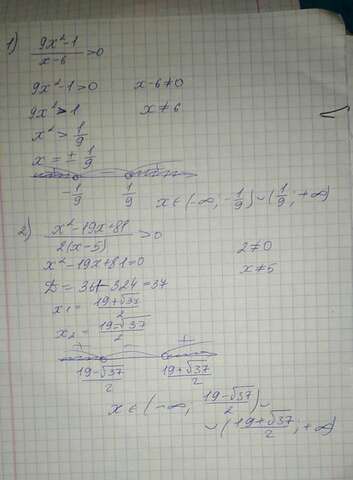 1) (9x²-1)/(x-6) >0
9x²-1>0 x-6≠0
9x²>1 x≠6
x²>1/9
x=±1/9
+ - +
-1/9 1/9 x∈(-∞,-1/9)∪(1/9;+∞)
2) (x²-19x+81)/(2(x-5)) >0
x²-19x+81=0 2≠0
x≠5
D=361-324=37
x₁=(19+√37)/2
x₂=(19-√37)/2
+ - +
(19-√37)/2 (19+√37)/2
x∈(-∞,(19-√37)/2)∪
∪((19+√37)/2;+∞)